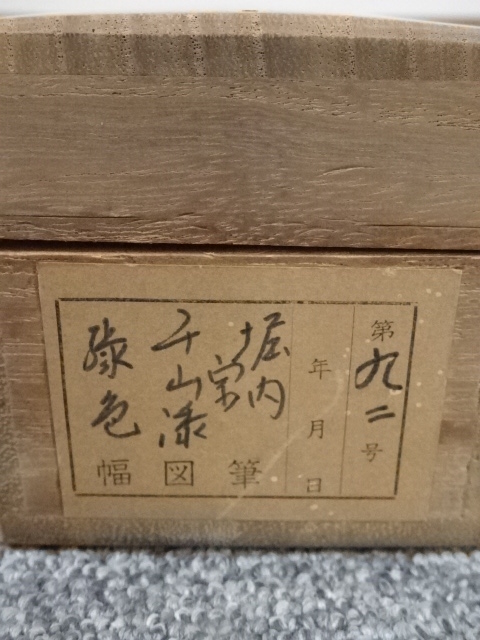 第九二号
年月日
堀内
宗
筆
千山添図
緑色幅